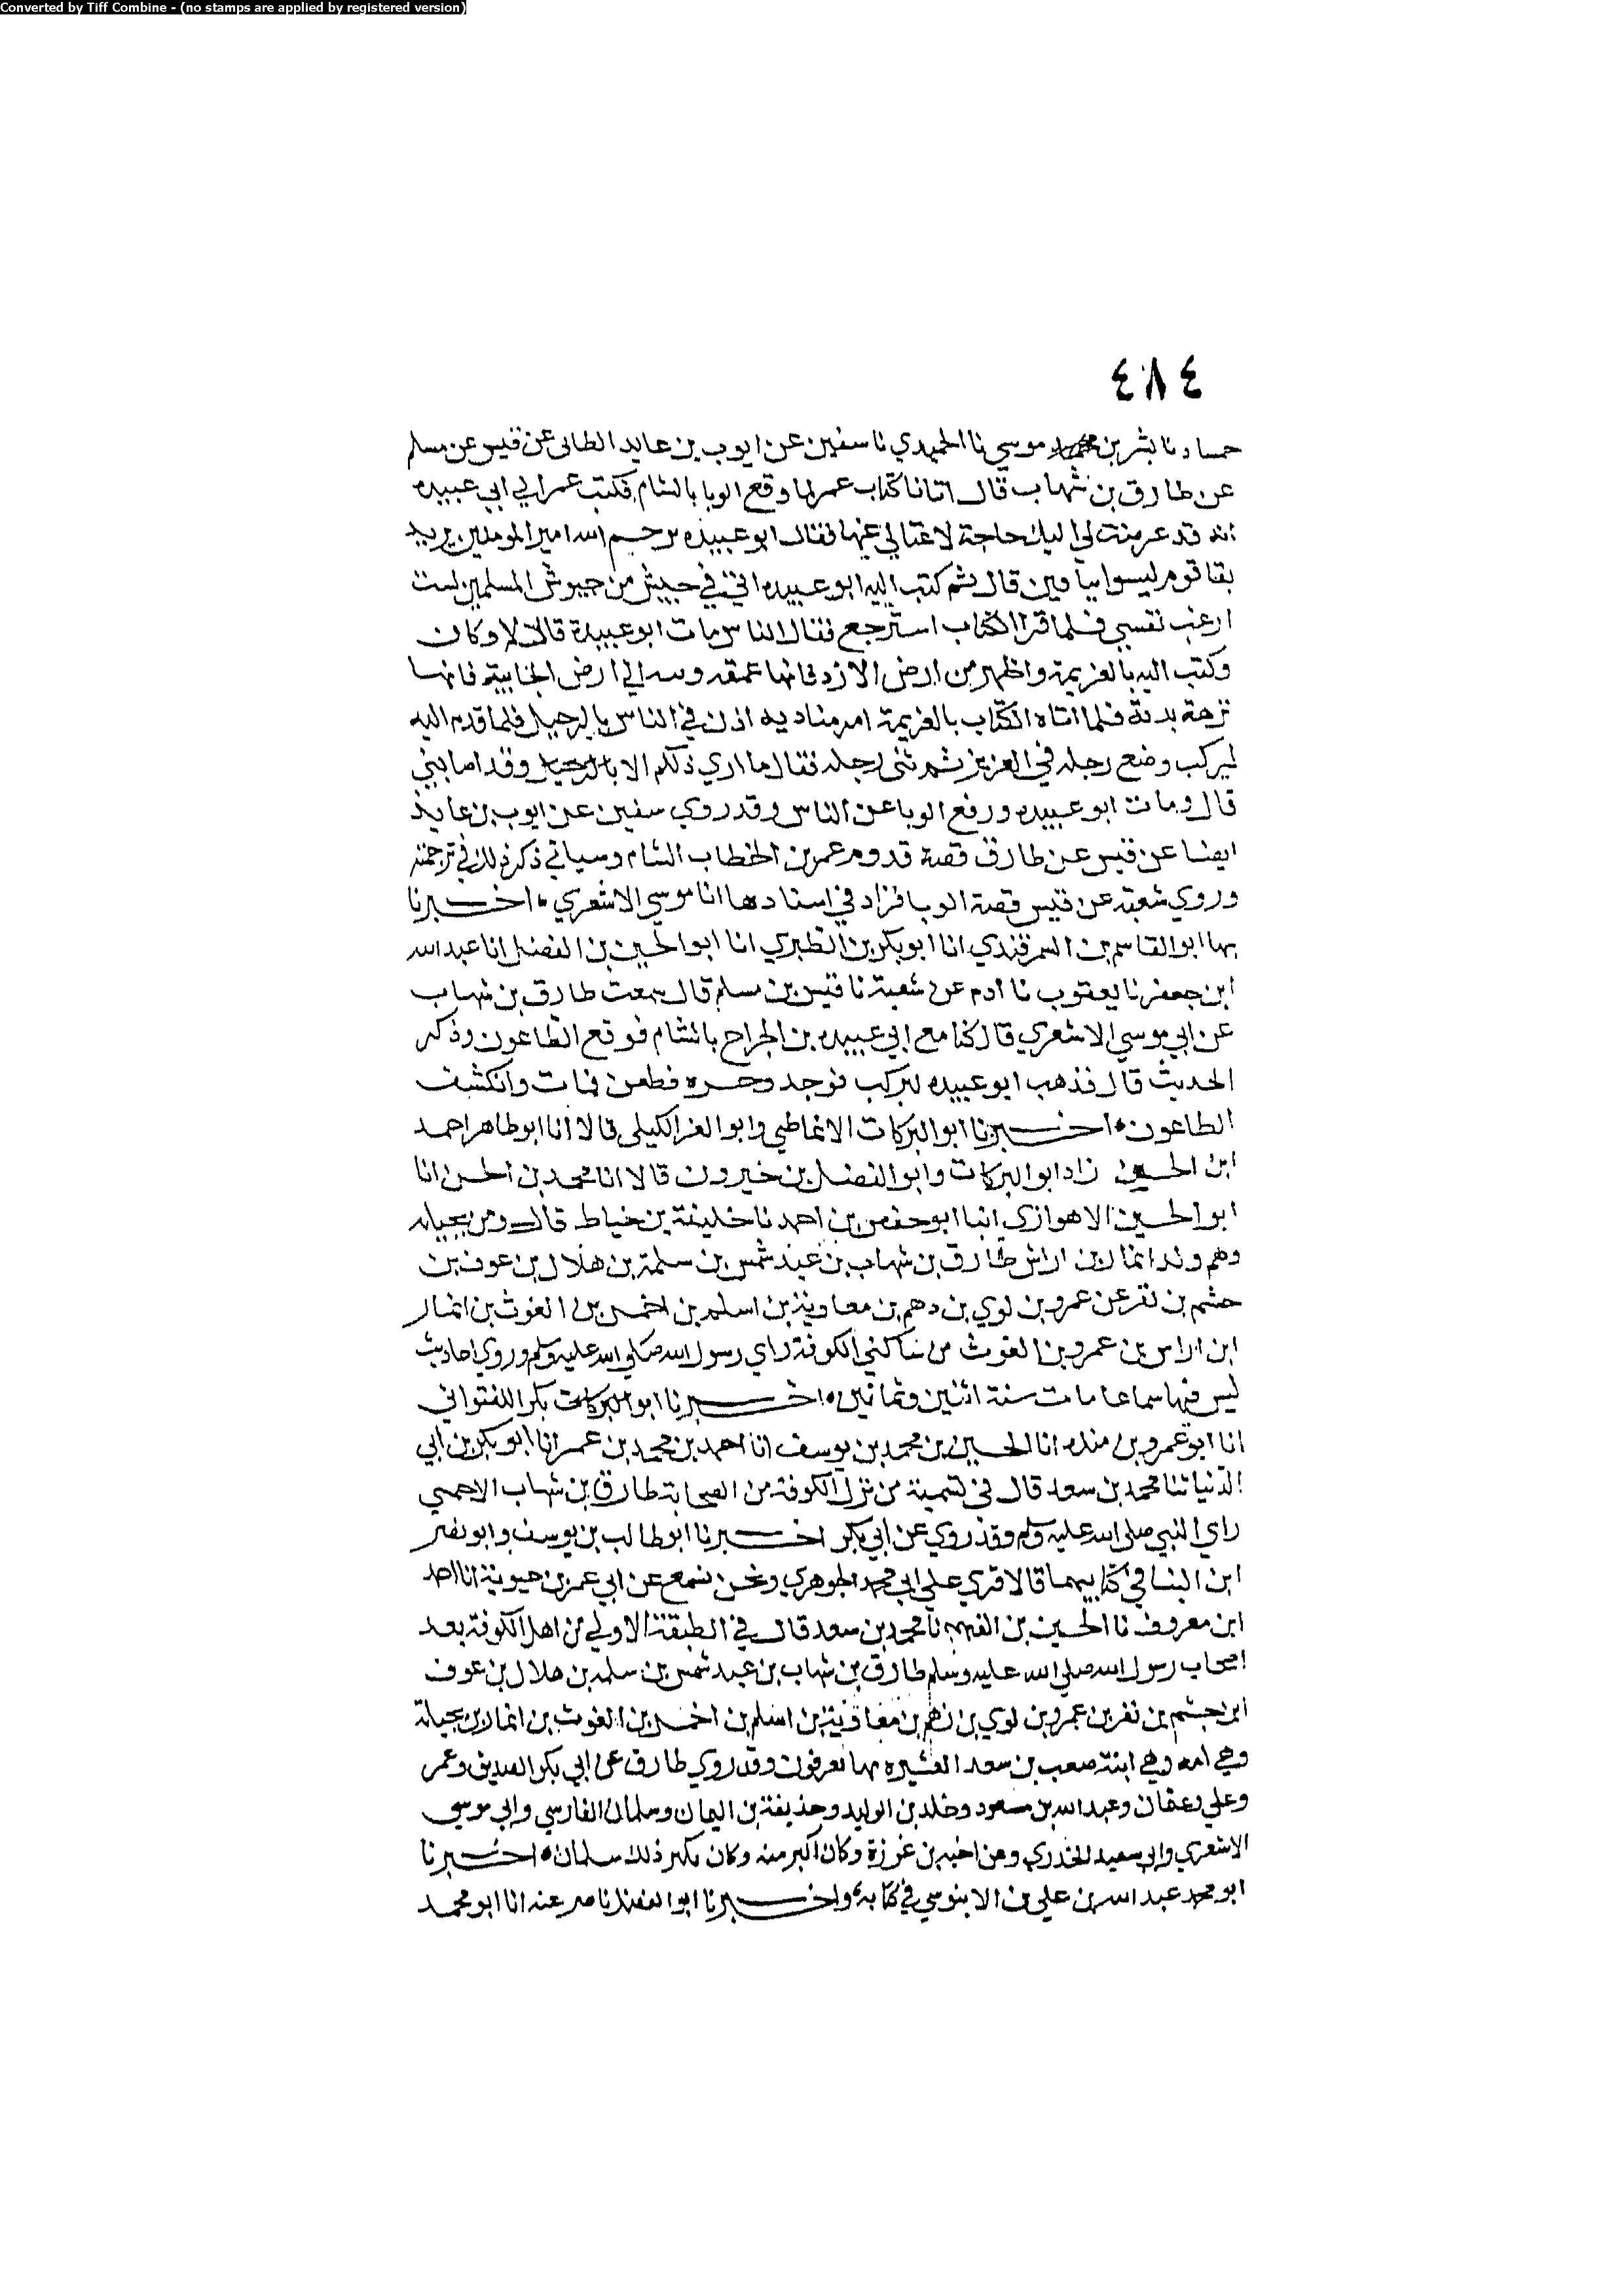 Converted by Tiff Combine - (no stamps are applied by registered version)
٤٨٤
حماد نا بشر بن موسي نا الحميدي نا سفين عن ايوب بن عايد الطائي عن قيس عن مسلم
عن طارق بن شهاب قال اتانا كتاب عمر لما وقع الوبا بالشام فكتب عمر الي ابي عبيده
انه قد عرضت لي اليك حاجة لا غنا لي عنها فقال ابو عبيده يرحم الله امير المومنين يريد
بقا قوم ليسوا بباقين قال ثم كتب اليه ابو عبيده اني في جيش من جيوش المسلمين لست
ارغب بنفسي فلما قرا الكتاب استرجع فقال الناس مات ابو عبيدة قال لا وكان
وكتب اليه بالعزيمة واظهر من ارض الازد فانها عمقه الي ارض الجابية فانها
نزهة بدنة فلما اتاه الكتاب بالعزيمة امر مناديه اذن في الناس بالرحيل فلما قدم اليه
ليركب وضع رجله في الغرز ثم ثني رجله فقال ما اري ذلكم الا وقد اصابني
قال ومات ابو عبيده ورفع الوبا عن الناس وقد روي سفين عن ايوب بن عايذ
ايضا عن قيس عن طارق قصة قدوم عمر بن الخطاب الشام وسياتي ذكر ذلك في ترجمته
وروي شعبة عن قيس قصة الوبا فزاد في اسنادها انا موسي الاشعري ۰ اخبرنا
بها ابو القاسم بن السمرقندي انا ابو بكر بن الطبري انا ابو الحسين بن الفضل انا عبد الله
ابن جعفر نا يعقوب نا ادم عن شعبة نا قيس بن مسلم قال سمعت طارق بن شهاب
عن ابي موسي الاشعري قال كنا مع ابي عبيده بن الجراح بالشام فوقع الطاعون وذكر
الحديث قال فذهب ابو عبيده ليركب فوجد وخزه فطعن فمات وانكشف
الطاعون ۰ اخبرنا ابو البركات الانماطي وابو العز الكيلي قالا انا ابو طاهر احمد
ابن الحسين زاد ابو البركات وابو الفضل بن خيرون قالا انا محمد بن الحسن انا
ابو الحسين الاهوازي انبا ابو حفص بن احمد نا خليفة بن خياط قال ومن بجيله
وهم ولد انمار بن اراش طارق بن شهاب بن عبد شمس بن سلمة بن هلال بن عوف بن
حشم بن نفر عن عمرو بن لوي بن دهم بن معاوية بن اسلم بن اخمس بن الغوث بن انمار
ابن اراس بن عمرو بن الغوث من ساكني الكوفة راي رسول الله صلي الله عليه وسلم وروي احاديث
ليس فيها سماعا مات سنة اثنين وثمانين ۰ اخبرنا ابو البركات بكر اللفتواني
انا ابو عمرو بن منده انا الحسين بن محمد بن يوسف انا احمد بن محمد بن عمر انا ابو بكر بن ابي
الدنيا ثنا محمد بن سعد قال في تسمية من نزل الكوفة من الصحابة طارق بن شهاب الاحمسي
راي النبي صلي الله عليه وسلم وقد روي عن ابي بكر اخبرنا ابو طالب بن يوسف وابو نصر
ابن البنا في كتابيهما قالا قري علي ابي محمد الجوهري ونحن نسمع عن ابي عمر بن حيوية انا احمد
ابن معروف نا الحسين بن الفهم نا محمد بن سعد قال في الطبقة الاولي من اهل الكوفة بعد
اصحاب رسول الله صلي الله عليه وسلم طارق بن شهاب بن عبد شمس بن سلمه بن هلال بن عوف
ابن جشم بن نفر بن عمرو بن لوي بن زهم بن معاوية بن اسلم بن اخمس بن الغوث بن انمار بن بجيلة
وهي امه وهي ابنة صعب بن سعد العشيره بها يعرفون وقد روي طارق عن ابي بكر الصديق وعمر
وعلي وعثمان وعبد الله بن مسعود وخلد بن الوليد وحذيفة بن اليمان وسلمان الفارسي وابي موسي
الاشعري وابي سعيد الخدري ومن اخيه بن عزرة وكان اكبر منه وكان يكثر ذلك سلمان ۰ اخبرنا
ابو محمد عبد الله بن علي بن الابنوسي في كتابه واخبرنا ابو الفضل بن ناصر عنه انا ابو محمد